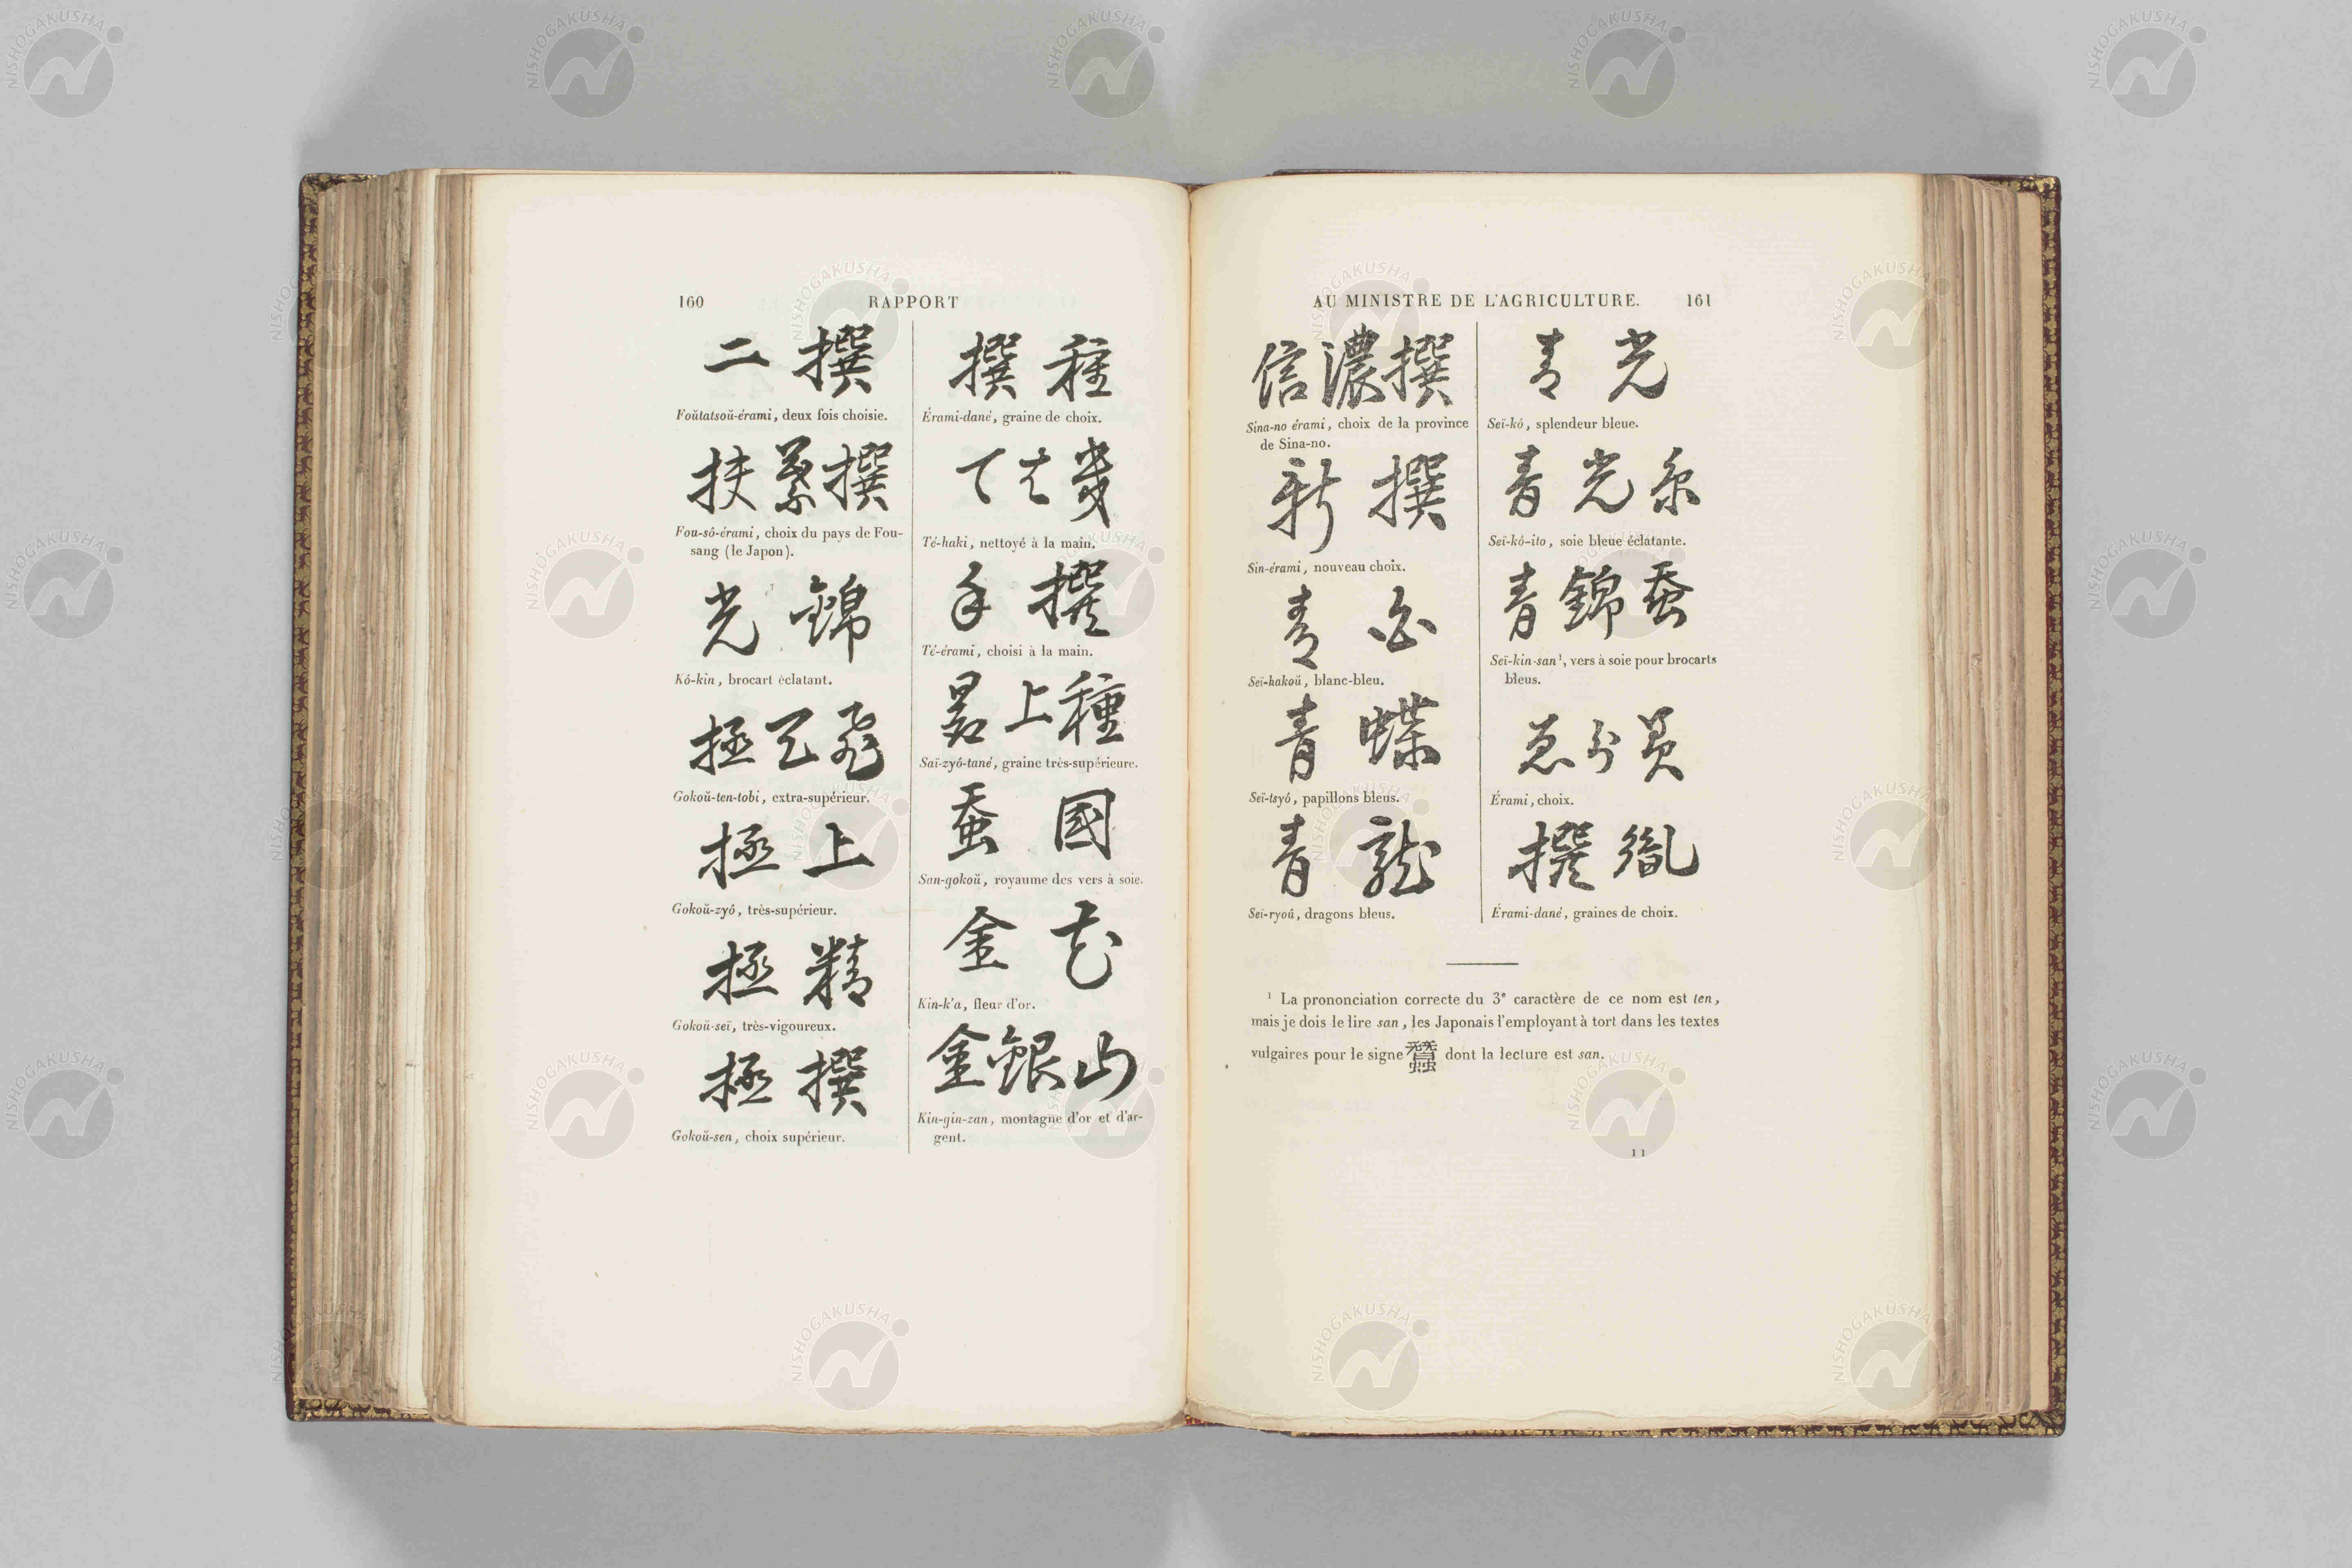 160 RAPPORT
二撰
Foŭtatsoŭ-érami, deux fois choisie.
扶桑撰
Fou-sô-érami, choix du pays de Fou-
sang (le Japon).
光錦
Kô-kin, brocart éclatant.
極天飛
Gokoŭ-ten-tobi, extra-supérieur.
極上
Gokoŭ-zyô, très-supérieur.
極精
Gokoŭ-seï, très-vigoureux.
極撰
Gokoŭ-sen, choix supérieur.
撰種
Érami-dané, graine de choix.
ては幾
Té-haki, nettoyé à la main.
手撰
Té-érami, choisi à la main.
最上種
Saï-zyô-tané, graine très-supérieure.
蚕國
San-gokoŭ, royaume des vers à soie.
金花
Kin-k'a, fleur d'or.
金銀山
Kin-gin-zan, montagne d'or et d'ar-
gent.
AU MINISTRE DE L'AGRICULTURE. 161
信濃撰
Sina-no érami, choix de la province
de Sina-no.
新撰
Sin-érami, nouveau choix.
青白
Seï-hakoŭ, blanc-bleu.
青蝶
Seï-tsyô, papillons bleus.
青龍
Seï-ryoŭ, dragons bleus.
青光
Seï-kô, splendeur bleue.
青光糸
Seï-kô-ito, soie bleue éclatante.
青錦蚕
Seï-kin-san¹, vers à soie pour brocarts
bleus.
Érami, choix.
撰胤
Érami-dané, graines de choix.
¹ La prononciation correcte du 3ᵉ caractère de ce nom est ten,
mais je dois le lire san, les Japonais l'employant à tort dans les textes
vulgaires pour le signe 蠶 dont la lecture est san.
11
NISHOGAKUSHA